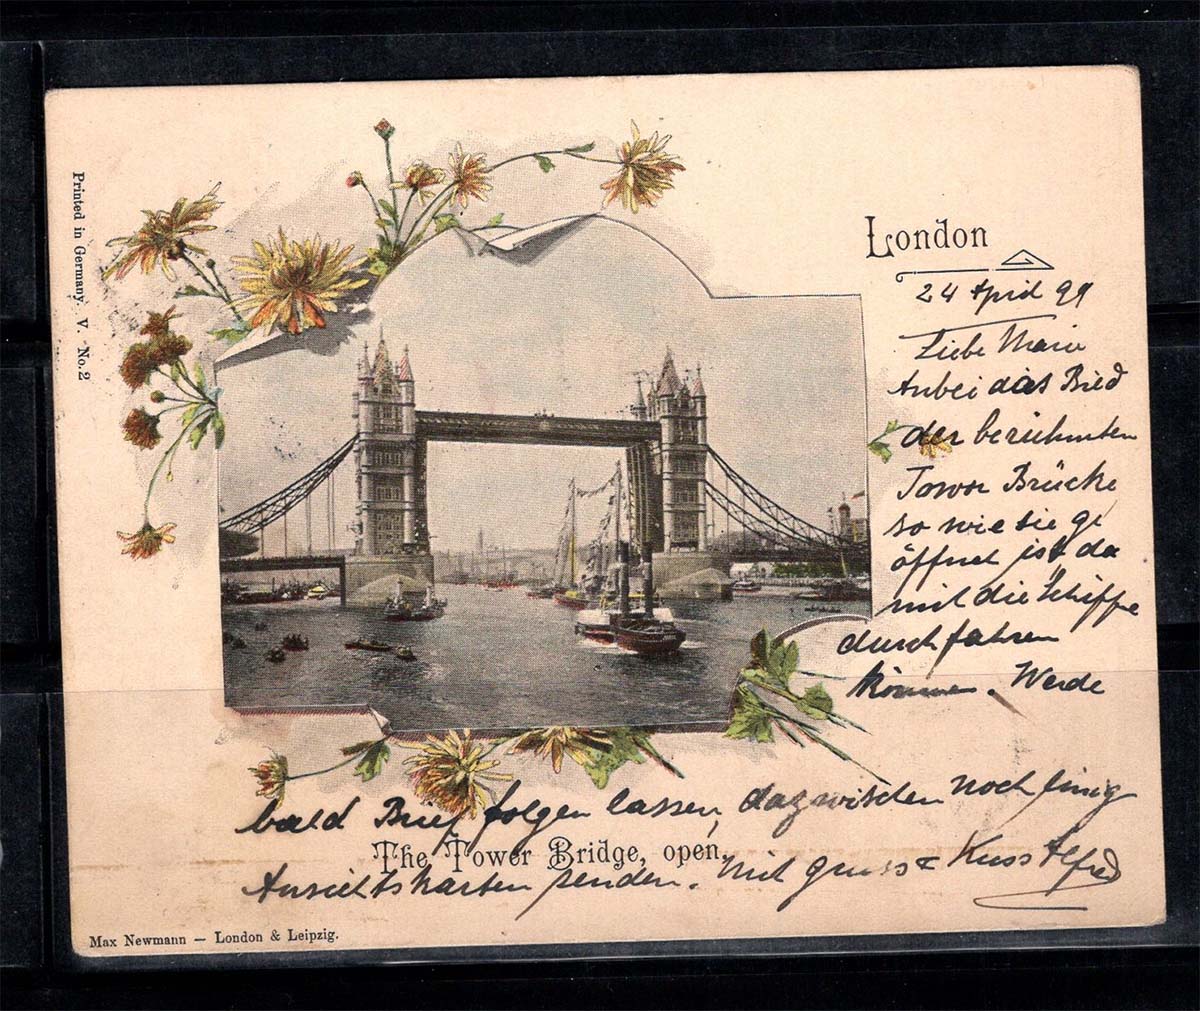 Printed in Germany. V. No. 2
London
24 April 99
Liebe Marie
Anbei das Bild
der berühmten
Tower Brücke
so wie sie ge
öffnet ist, da
mit die Schiffe
durchfahren
können. Werde
bald Brief folgen lassen, dazwischen noch einig
The Tower Bridge, open.
Ansichtskarten senden. Mit gruss & Kuss Alfred
Max Newmann — London & Leipzig.